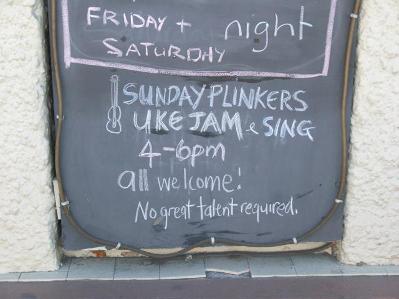 FRIDAY + night
SATURDAY
SUNDAY PLINKERS
UKE JAM & SING
4-6pm
all welcome!
No great talent required.